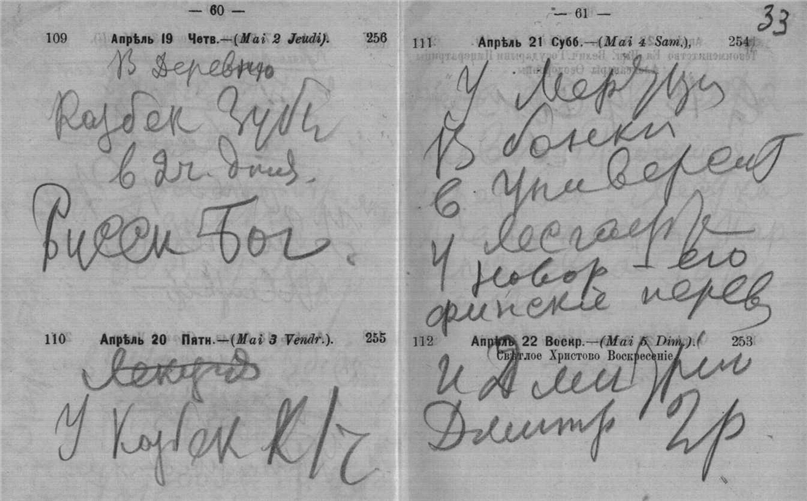 — 60 —
109 Апрѣль 19 Четв.—(Mai 2 Jeudi). 256
В Деревню
Казбек Зубы
в 2 ч. дня.
Русск Бог.
110 Апрѣль 20 Пятн.—(Mai 3 Vendr.). 255
Лекция
У Казбек
— 61 —
33
111 Апрѣль 21 Субб.—(Mai 4 Sam.), 254
У
В банки
в университ
У Лесгафт
У Новор – его
финские перев
112 Апрѣль 22 Воскр.—(Mai 5 Dim.). 253
Свѣтлое Христово Воскресеніе.
и Дмитрий
Дмитр Гр.